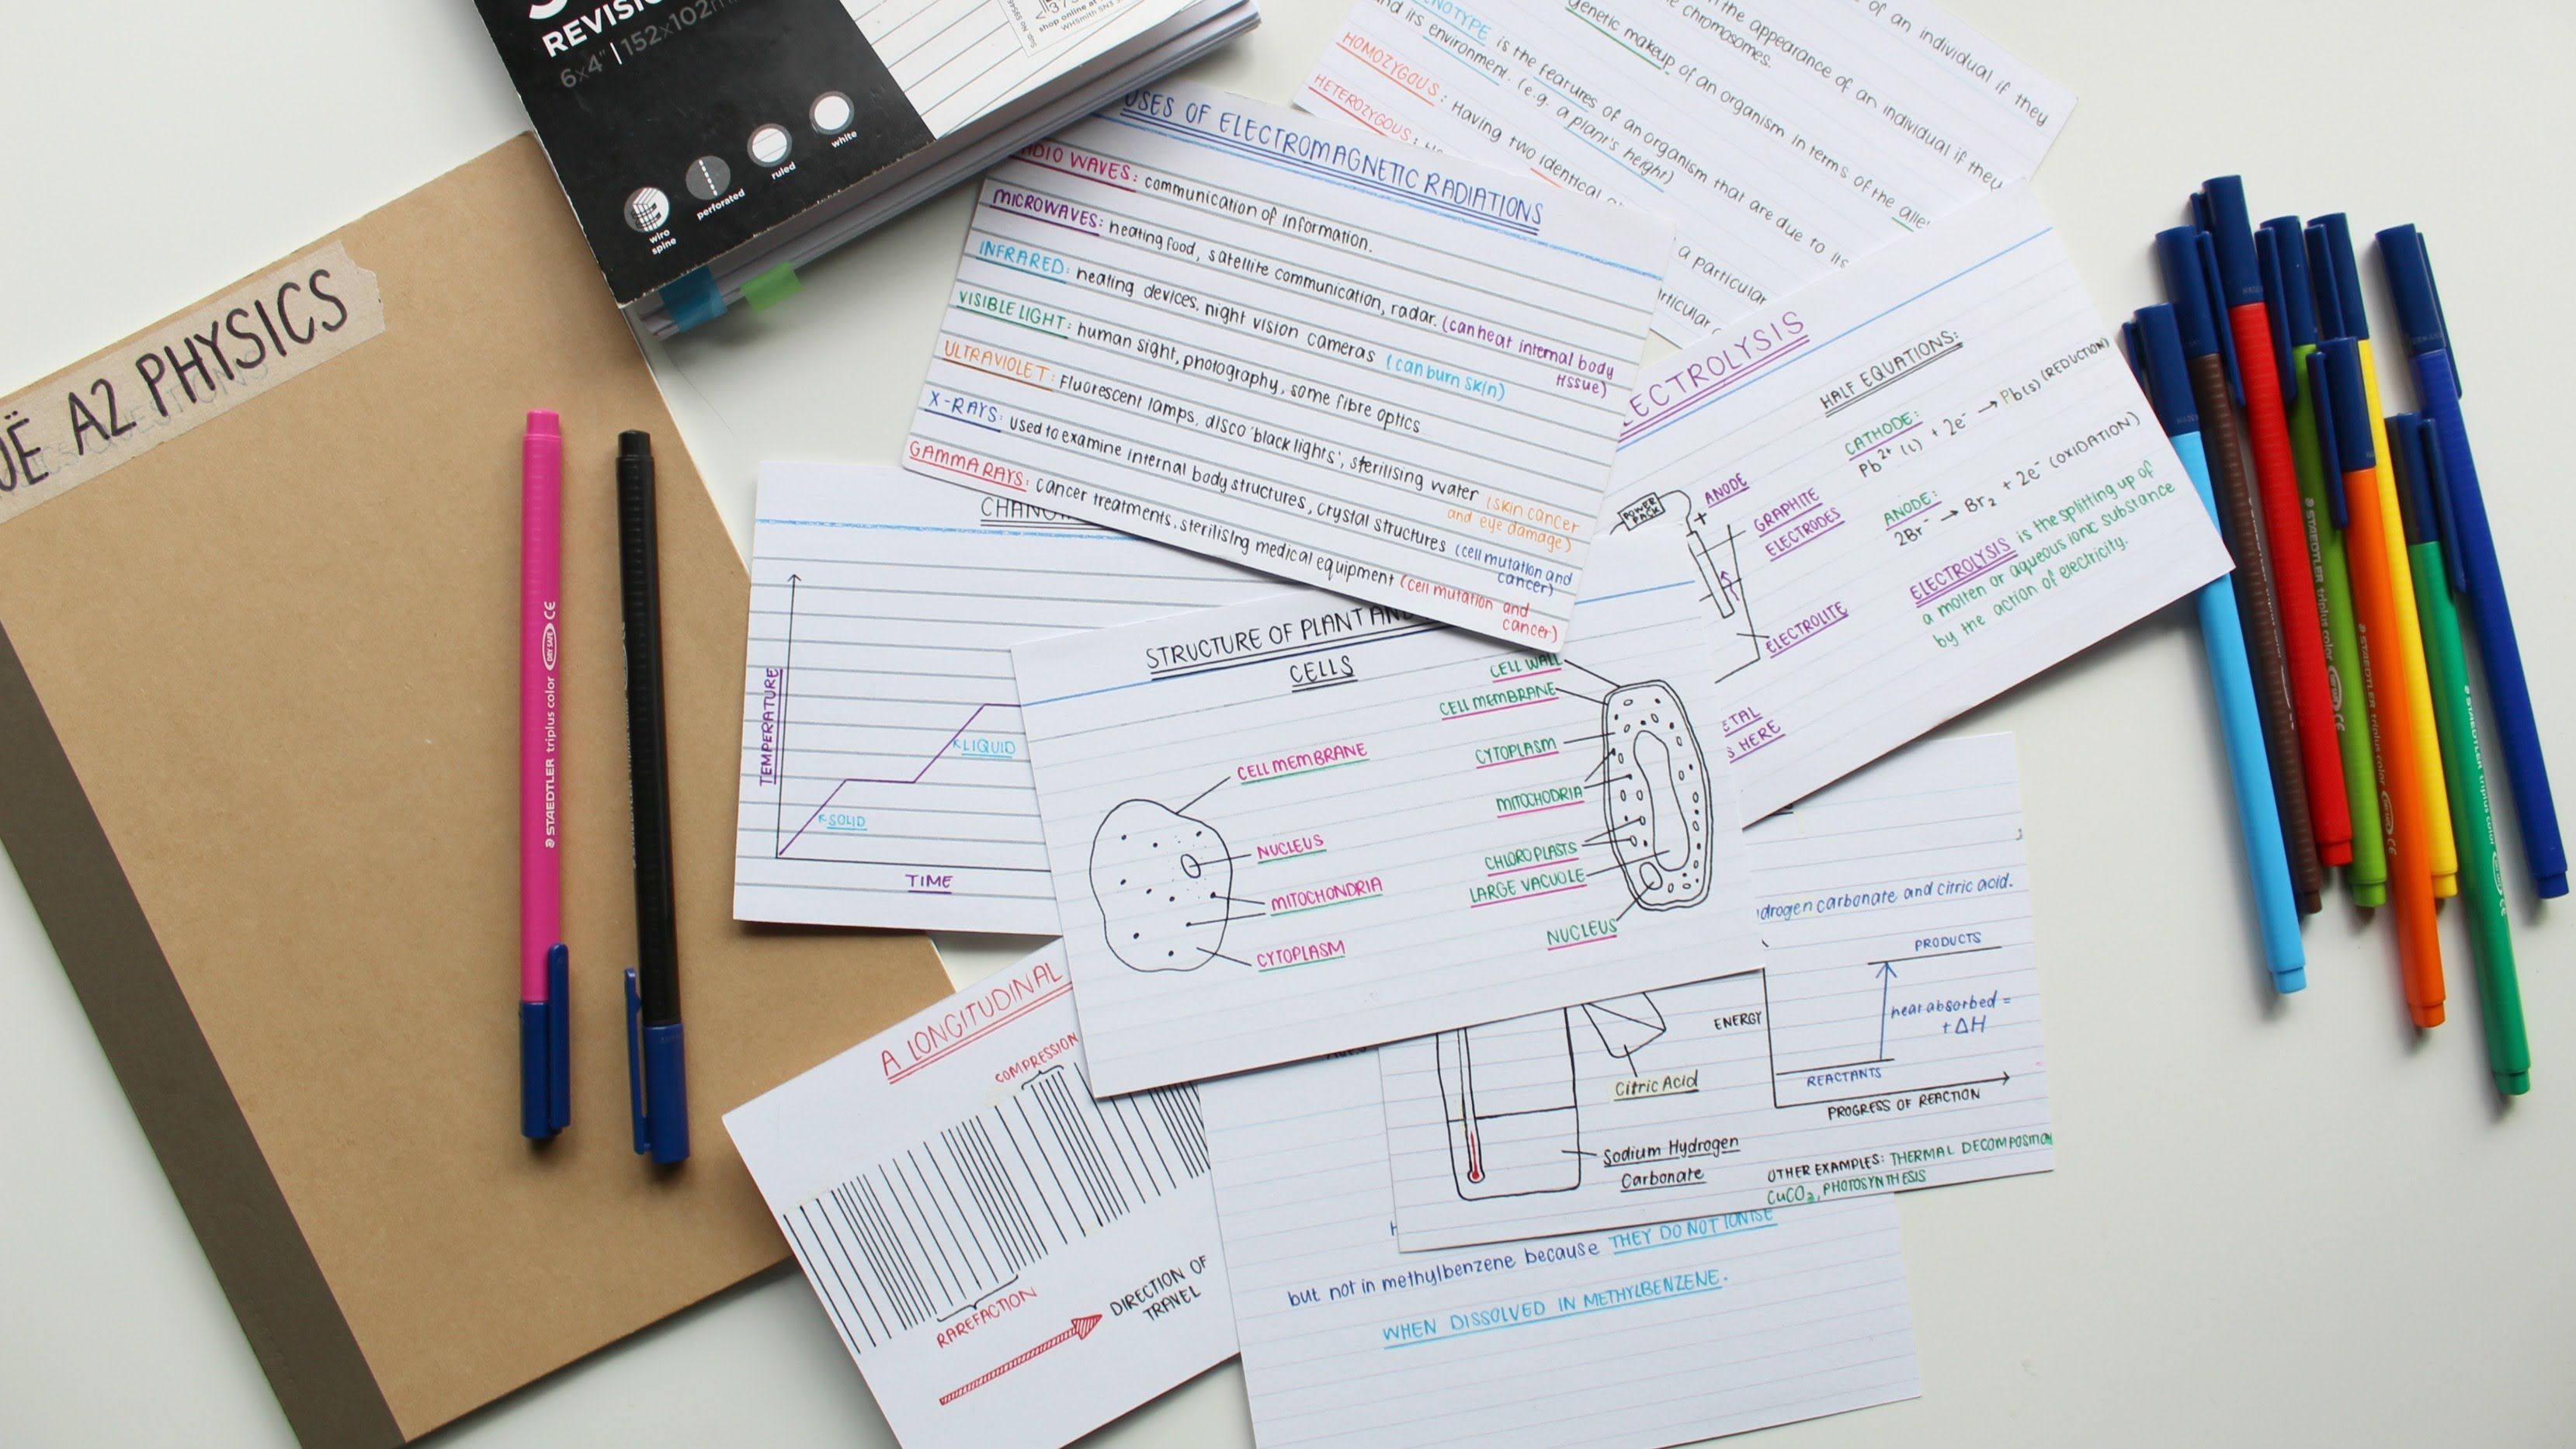 REVISIO
6x4" | 152x102m
wiro
spine
perforated
ruled
white
shop online at
WHSmith
A2 PHYSICS
STAEDTLER triplus color DRY SAFE CE
USES OF ELECTROMAGNETIC RADIATIONS
RADIO WAVES: communication of information.
MICROWAVES: heating food, satellite communication, radar. (can heat internal body
tissue)
INFRARED: heating devices, night vision cameras (can burn skin)
VISIBLE LIGHT: human sight, photography, some fibre optics
ULTRAVIOLET: Fluorescent lamps, disco 'black lights', sterilising water (skin cancer
and eye damage)
X-RAYS: used to examine internal body structures, crystal structures (cell mutation and
cancer)
GAMMA RAYS: cancer treatments, sterilising medical equipment (cell mutation and
cancer)
of an individual if they
the appearance of an individual if they
chromosomes.
genetic makeup of an organism in terms of the alle
NOTYPE is the features of an organism that are due to its
nd its environment. (e.g. a plant's height)
HOMOZYGOUS: Having two identical
HETEROZYGOUS:
a particular
rticular
ECTROLYSIS
HALF EQUATIONS:
CATHODE:
Pb²⁺ (l) + 2e⁻ → Pb(s) (REDUCTION)
ANODE:
2Br⁻ → Br₂ + 2e⁻ (OXIDATION)
ELECTROLYSIS is the splitting up of
a molten or aqueous ionic substance
by the action of electricity.
POWER
PACK
+
ANODE
GRAPHITE
ELECTRODES
ELECTROLITE
ETAL
S HERE
TEMPERATURE
SOLID
LIQUID
TIME
STRUCTURE OF PLANT AND
CELLS
CELL MEMBRANE
NUCLEUS
MITOCHONDRIA
CYTOPLASM
CELL WALL
CELL MEMBRANE
CYTOPLASM
MITOCHODRIA
CHLOROPLASTS
LARGE VACUOLE
NUCLEUS
A LONGITUDINAL
COMPRESSION
RAREFACTION
DIRECTION OF
TRAVEL
drogen carbonate and citric acid.
PRODUCTS
heat absorbed =
+ΔH
ENERGY
REACTANTS
PROGRESS OF REACTION
Citric Acid
Sodium Hydrogen
Carbonate
OTHER EXAMPLES: THERMAL DECOMPOSITION
CuCO₃, PHOTOSYNTHESIS
but not in methylbenzene because THEY DO NOT IONISE
WHEN DISSOLVED IN METHYLBENZENE.
STAEDTLER triplus color
STAEDTLER triplus color
STAEDTLER triplus color